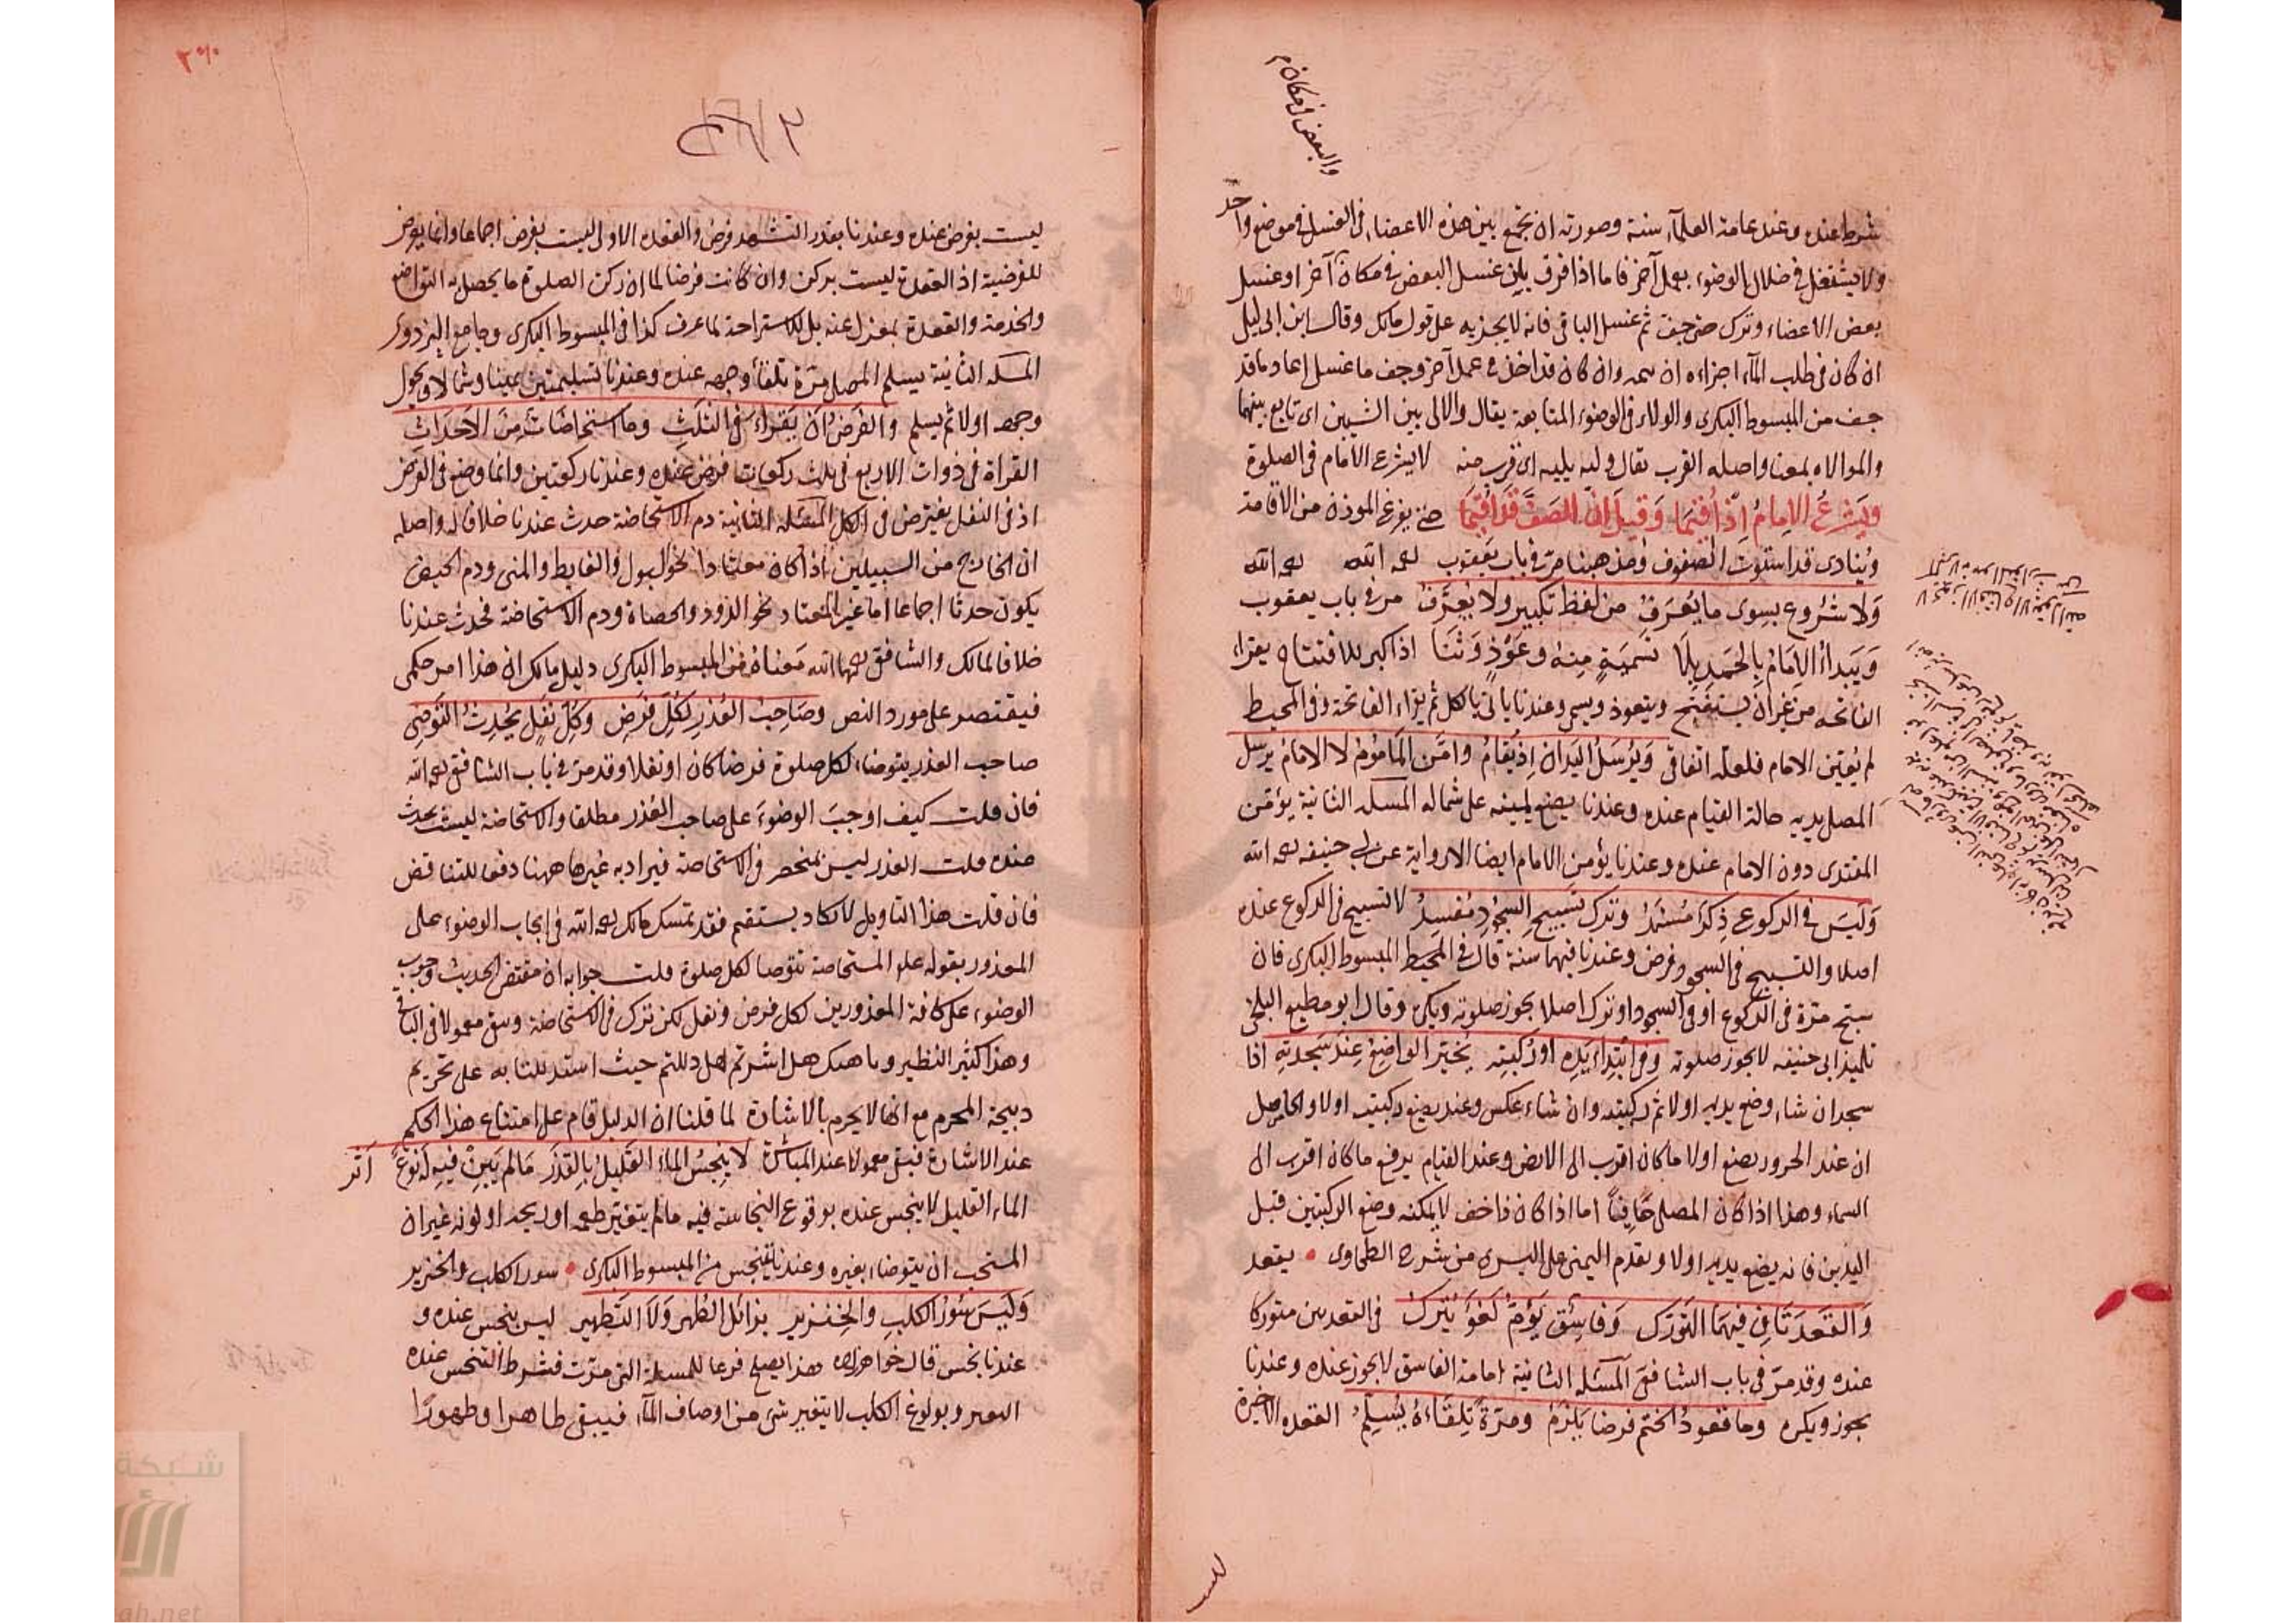 والبعض في مكان م
شرط عنده وعند عامة العلماء سنة وصورته ان يجمع بين هذه الاعضاء في الغسل في موضع واحد
ولا يشتغل في خلال الوضوء بعمل آخر فاما اذا فرق بان غسل البعض في مكان آخر او غسل
بعض الاعضاء وترك حتى جف ثم غسل الباقي فانه لا يجزيه على قول مالك وقال ابن ابي ليلى
ان كان في طلب الماء اجزاه ان وان كان قد اخذ في عمل آخر وجف ما غسل اعاد ما قد
جف من المبسوط البكري والولاء في الوضوء المتابعة يقال والا لي بين الشيين اي تابع بينهما
والموالاه بمعنا واصله القرب يقال وليه يليه اي قرب منه لا يشرع الامام في الصلوة
ويشرع الامام اذ اقيما وقيل ان الصف قد اقيما حتى يفرغ الموذن من الاقامة
وينادى قد استوت الصفوف ومذهبنا مر في باب يعقوب رحمه الله رحمه الله
ولا شروع بسوى ما يعرف من لفظ تكبير ولا يعرف مر في باب يعقوب
ويبدأ الامام بالحمد بلا تسمية منه وعوذ وثنا اذا كبر للافتتاح يقراء
الفاتحه من غير ان يستفتح ويتعوذ ويسمي وعندنا ياتي بالكل ثم يقراء الفاتحة وفي المحيط
لم يعين الامام فلعله اتفاقي ويرسل اليدان اذ يقام وامن الماموم لا الامام يرسل
المصلي يديه حالة القيام عنده وعندنا يضع يمينه على شماله المسئله الثانية يؤمن
المقتدى دون الامام عنده وعندنا يؤمن الامام ايضا الا رواية عن ابي حنيفه رحمه الله
وليس في الركوع ذكرا مسندا وترك تسبيح السجود مفسد لا تسبيح في الركوع عنده
اصلا والتسبيح في السجود فرض وعندنا فيهما سنة قال في المحيط المبسوط البكري فان
سبح مرة في الركوع او في السجود او ترك اصلا يجوز صلوته ويكره وقال ابو مطيع البلخي
تلميذ ابي حنيفه لا يجوز صلوته وفي ابتداء يده او ركبته يخير الواضع عند سجدته اذا
سجد ان شاء وضع يديه اولا ثم ركبتيه وان شاء عكس وعند يضع ركبتيه اولا والحاصل
ان عند الحرور يضع اولا ما كان اقرب الى الارض وعند القيام يرفع ما كان اقرب الى
السماء وهذا اذا كان المصلي حافيا اما اذا كان ذا خف لا يمكنه وضع الركبتين قبل
اليدين فانه يضع يديه اولا ويقدم اليمنى على اليسرى من شرح الطحاوى يقعد
والقعدتان فيهما التورك وفاسق يؤم لغو يترك في القعدتين متوركا
عنده وقد مر في باب الشافعي المسئله الثانية امامة الفاسق لا يجوز عنده وعندنا
يجوز ويكره وما قعود الختم فرضا يلزم ومرة تلقاءه يسلم القعده الاخيرة
ليست بفرض عنده وعندنا بقدر التشهد فرض والقعده الاولى ليست بفرض اجماعا وانما يعرض
للفرضية اذ القعدة ليست بركن وان كانت فرضا لما ان ركن الصلوة ما يحصل به التواضع
والخدمة والقعدة بمعزل عنه بل للاستراحة لما عرف كذا في المبسوط البكري وجامع البزدوى
المسئله الثانية يسلم المصلي مرة تلقاء وجهه عنده وعندنا تسليمتين يمينا وشمالا ويحول
وجهه اولا ثم يسلم والفرض ان يقراء في الثلث وما استحاضات من الاحداث
القراة في ذوات الاربع في ثلث ركعات فرض عنده وعندنا ركعتين وانما وضع في الفرض
اذ في النفل يفترض في الكل المسئله الثانية دم الاستحاضة حدث عندنا خلافا له واصله
ان الخارج من السبيلين اذا كان معتادا نحو البول والغايط والمني ودم الحيض
يكون حدثا اجماعا اما غير المعتاد نحو الدود والحصاة ودم الاستحاضة فحدث عندنا
خلافا لمالك والشافعي رحمهما الله معناه في المبسوط البكري دليل مالك ان هذا امر حكمي
فيقتصر على مورد النص وصاحب العذر لكل فرض وكل نفل يحدث التوضي
صاحب العذر يتوضاء لكل صلوة فرضا كان او نفلا وقد مر في باب الشافعي رحمه الله
فان قلت كيف اوجب الوضوء على صاحب العذر مطلقا والاستحاضة ليست بحدث
عنده قلت العذر ليس بمنحصر في الاستحاضة فيراد به غيرها ههنا دفعا للتناقض
فان قلت هذا التاويل لا يكاد يستقيم فقد تمسك مالك رحمه الله في ايجاب الوضوء على
المعذور بقوله علم المستحاضة تتوضا لكل صلوة قلت جوابه ان مقتضى الحديث وجوب
الوضوء على كافة المعذورين لكل فرض ونفل لكن ترك في الاستحاضة وبقى معمولا في الباقي
وهذا كثير النظير وناهيك هل اشرتم هل دللتم حيث استدللنا به على تحريم
ذبيحة المحرم مع انها لا يحرم بالاشارة لما قلنا ان الدليل قام على امتناع هذا الحكم
عند الاشارة فبقى معمولا عند المباشرة لا ينجس الماء القليل بالقذر ما لم يبن فيه له نوع اثر
الماء القليل لا ينجس عنده بوقوع النجاسة فيه ما لم يتغير طعمه او ريحه او لونه غير ان
المستحب ان يتوضاء بغيره وعندنا ينجس من المبسوط البكري سور الكلب والخنزير
وليس سئور الكلب والخنزير بزائل الطهر ولا التطهير ليس بنجس عنده و
عندنا نجس قال خواهرزاده هذا يصلح فرعا للمسئلة التي مرت فشرط التنجس عنده
التغير وبولوغ الكلب لا يتغير شي من اوصاف الماء فيبقى طاهرا وطهورا
شبكة
ah.net